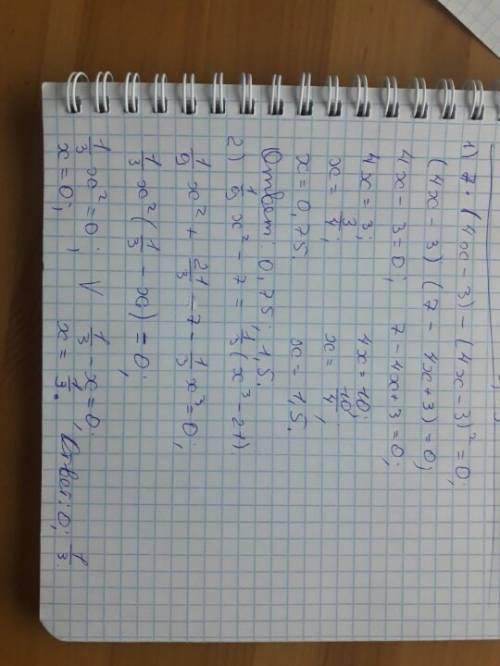 1) 7·(4x-3)-(4x-3)²=0;
(4x-3)(7-4x+3)=0;
4x-3=0; 7-4x+3=0;
4x=3; 4x=10;
x=3/4; x=10/4;
x=0,75. x=1,5.
Ответ: 0,75; 1,5.
2) 1/9 x²-7=1/3(x³-21)
1/9 x²+21/3-7-1/3 x³=0;
1/3 x²(1/3-x)=0;
1/3 x²=0; V 1/3-x=0;
x=0; x=1/3. Ответ: 0; 1/3.